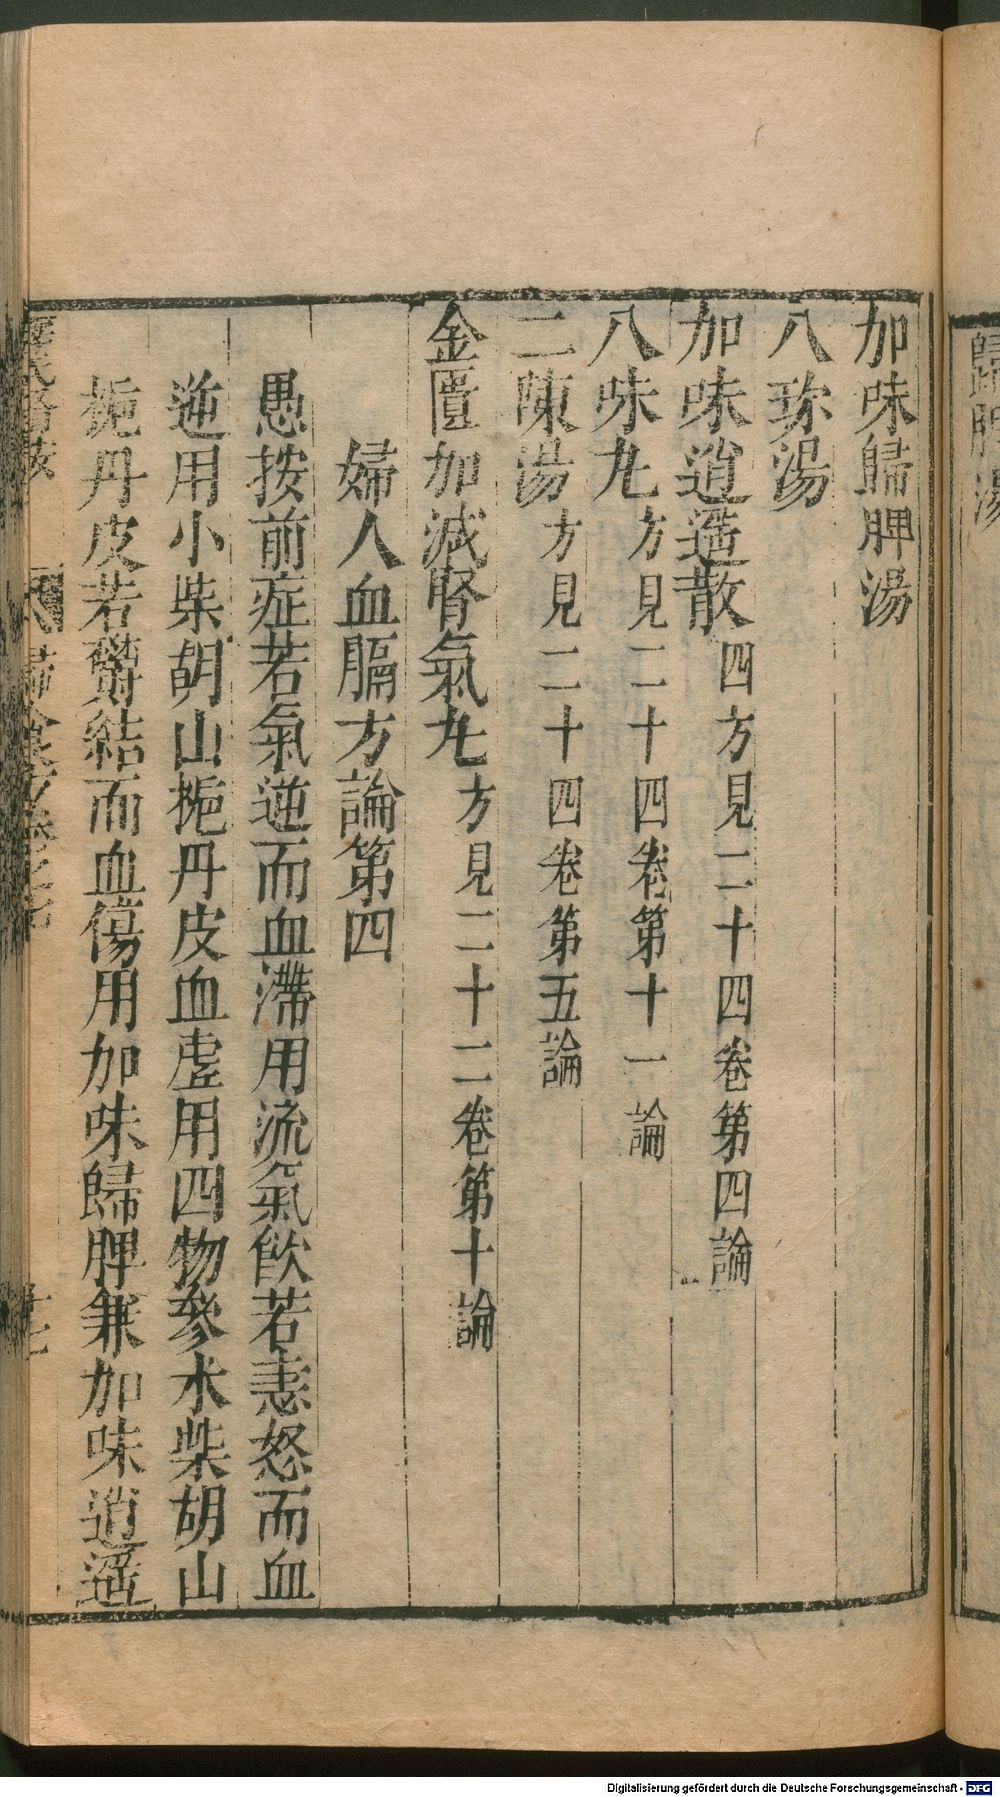 歸脾湯
加味歸脾湯
八珎湯
加味逍遥散四方見二十四卷第四論
八味九方見二十四卷第十一論
二陳湯方見二十四卷第五論
金匱加減腎氣九方見二十二卷第十論
婦人血膈方論第四
愚按前症若氣逆而血滯用流氣飲若恚怒而血
逆用小柴胡山梔丹皮血虛用四物參朮柴胡山
梔丹皮若欝結而血傷用加味歸脾兼加味逍遥
Digitalisierung gefördert durch die Deutsche Forschungsgemeinschaft - DFG